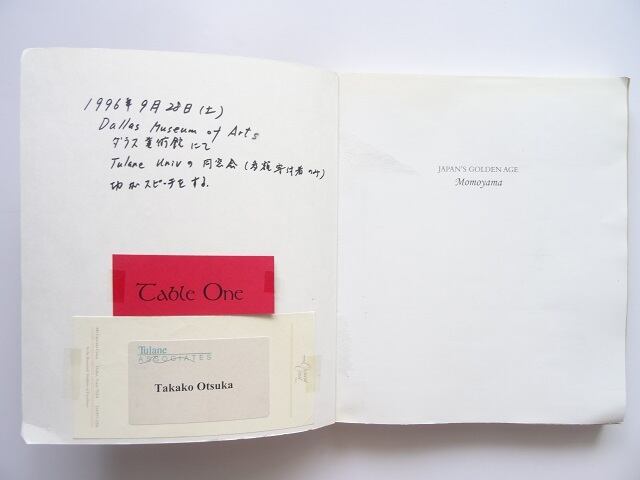 1996年9月28日(土)
Dallas Museum of Arts
ダラス美術館にて
Tulane Univの同窓会(高額寄付者のみ)
功がスピーチをする.
Table One
Tulane
ASSOCIATES
Takako Otsuka
JAPAN'S GOLDEN AGE
Momoyama